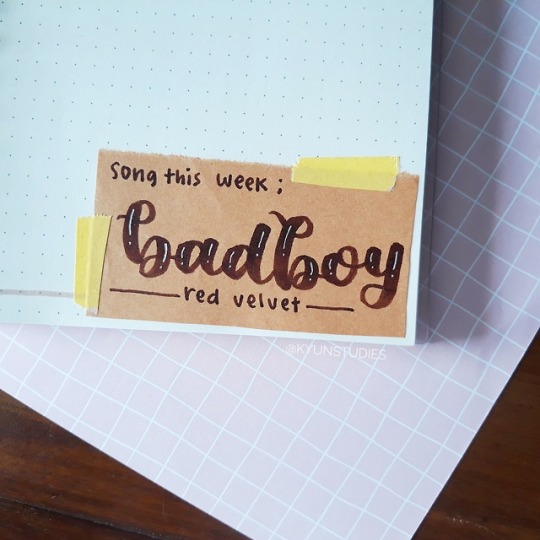 song this week ;
badboy
red velvet
@KYUNSTUDIES